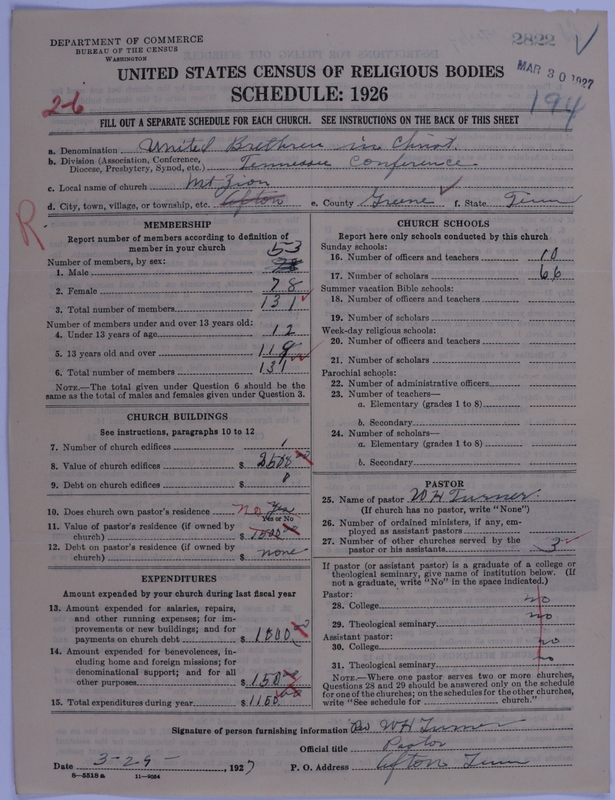 DEPARTMENT OF COMMERCE
BUREAU OF THE CENSUS
WASHINGTON
2822
MAR 30 1927
UNITED STATES CENSUS OF RELIGIOUS BODIES
SCHEDULE: 1926
26
194
FILL OUT A SEPARATE SCHEDULE FOR EACH CHURCH. SEE INSTRUCTIONS ON THE BACK OF THIS SHEET
a. Denomination United Brethren in Christ
b. Division (Association, Conference, Diocese, Presbytery, Synod, etc.) Tennessee Conference
c. Local name of church Mt Zion
d. City, town, village, or township, etc. Afton e. County Greene f. State Tenn
R
MEMBERSHIP
Report number of members according to definition of member in your church
Number of members, by sex:
1. Male 53
2. Female 78
3. Total number of members 131
Number of members under and over 13 years old:
4. Under 13 years of age 12
5. 13 years old and over 119
6. Total number of members 131
NOTE.—The total given under Question 6 should be the same as the total of males and females given under Question 3.
CHURCH BUILDINGS
See instructions, paragraphs 10 to 12
7. Number of church edifices 1
8. Value of church edifices $ 2500
9. Debt on church edifices $ 0
10. Does church own pastor's residence no Yea
Yes or No
11. Value of pastor's residence (if owned by church) $ 1500
12. Debt on pastor's residence (if owned by church) $ none
EXPENDITURES
Amount expended by your church during last fiscal year
13. Amount expended for salaries, repairs, and other running expenses; for improvements or new buildings; and for payments on church debt $ 1000
14. Amount expended for benevolences, including home and foreign missions; for denominational support; and for all other purposes $ 150
15. Total expenditures during year $ 1150
CHURCH SCHOOLS
Report here only schools conducted by this church
Sunday schools:
16. Number of officers and teachers 10
17. Number of scholars 66
Summer vacation Bible schools:
18. Number of officers and teachers
19. Number of scholars
Week-day religious schools:
20. Number of officers and teachers
21. Number of scholars
Parochial schools:
22. Number of administrative officers
23. Number of teachers—
a. Elementary (grades 1 to 8)
b. Secondary
24. Number of scholars—
a. Elementary (grades 1 to 8)
b. Secondary
PASTOR
25. Name of pastor W H Turner
(If church has no pastor, write "None")
26. Number of ordained ministers, if any, employed as assistant pastors
27. Number of other churches served by the pastor or his assistants 3
If pastor (or assistant pastor) is a graduate of a college or theological seminary, give name of institution below. (If not a graduate, write "No" in the space indicated.)
Pastor:
28. College no
29. Theological seminary no
Assistant pastor:
30. College no
31. Theological seminary no
NOTE.—Where one pastor serves two or more churches, Questions 28 and 29 should be answered only on the schedule for one of the churches; on the schedules for the other churches, write "See schedule for church."
Signature of person furnishing information Rev W H Turner
Official title Pastor
Date 3-25-, 1927 P. O. Address Afton Tenn
8-5518a 11-9054